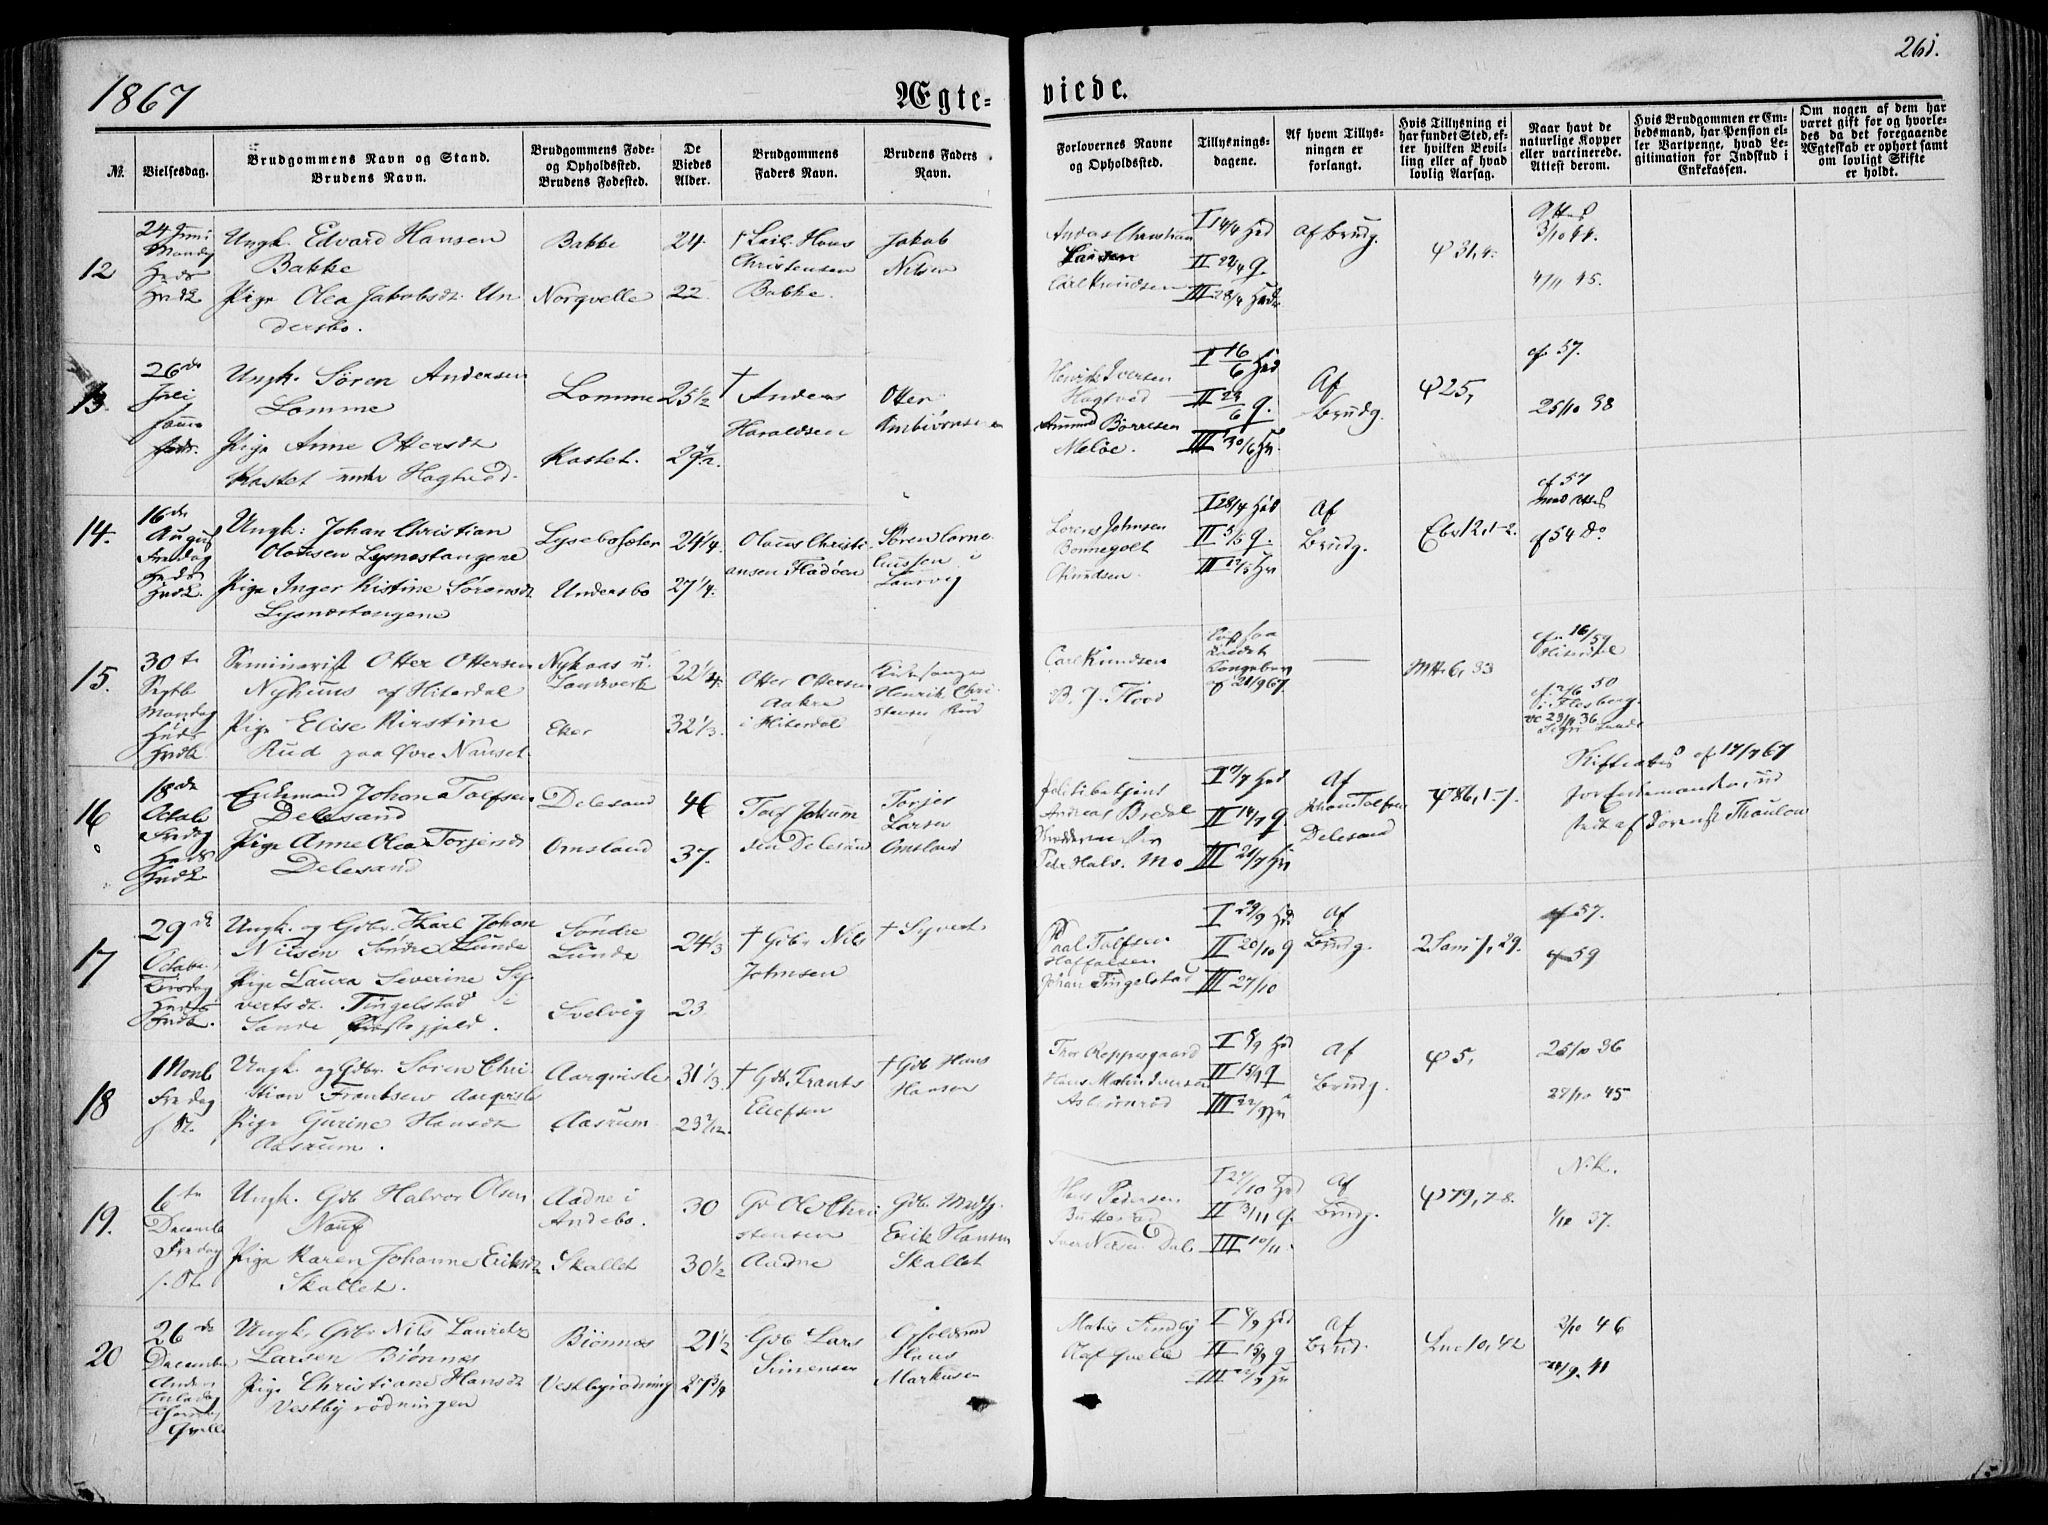 1867
Ægte=
viede.
261.
№.
Vielsesdag.
Brudgommens Navn og Stand.
Brudens Navn.
Brudgommens Føde-
og Opholdssted.
Brudens Fødested.
De
Viedes
Alder.
Brudgommens
Faders Navn.
Brudens Faders
Navn.
Forlovernes Navne
og Opholdssted.
Tillysnings-
dagene.
Af hvem Tillys-
ningen er
forlangt.
Hvis Tillysning ei
har fundet Sted, ef-
ter hvilken Bevil-
ling eller af hvad
lovlig Aarsag.
Naar havt de
naturlige Kopper
eller vaccinerede.
Attest derom.
Hvis Brudgommen er Em-
bedsmand, har Pension el-
ler Vartpenge, hvad Le-
gitimation for Indskud i
Enkekassen.
Om nogen af dem har
været gift før og hvorle-
des da det foregaaende
Ægteskab er ophørt samt
om lovligt Skifte
er holdt.
12
24 Juni
Mandg
Ungk. Edvard Hansen
Bakke
Pige Olea Jakobsdt. Un
dersbo.
Bakke
Norqvelle
24.
22.
Hans
Christensen
Bakke.
Jakob
Nilsen
Anders Christian
Larsen
Carl Knudsen
I 14/4 Hed
II 22/4 q.
III 28/4
Af Brudg.
ψ 31,4.
Attest
3/10 44.
4/11 45.
13.
26de
Juli
Ungk. Søren Andersen
Lomme
Pige Anne Ottersdt
Kastet under Hogtvedt.
Lomme
Kastet.
25 1/2
29 1/2.
† Anders
Haraldsen
Otter
Henrik Iversen
Hogtved
Amund Børresen
Meløe.
I 16/6 Hed
II 23/6 q.
III 30/6 Hv.
Af
Brudg.
ψ 25,
af 57.
25/10 38
14.
16de
August
Fredag
Ungk: Johan Christian
Olausen Lysnestangene
Pige Inger Kistine Sørensdt
Lysnestangene
Lysebosæter
Undersbo
24 1/4.
27 1/4.
Olaus Christi
ansen Fladøen
Søren Corne
liussen i
Laurvig
Lorens Johnsen
Bonnegolt
O Knudsen.
I 28/4 Hed
II 5/5 q.
III 12/5 Hv
Af
Brudg.
Ebr 12, 1-2.
af 57
med Attest
af 54 do
15.
30te
Septb
Mandag
Seminarist Otter Ottersen
Nyhuus af Hiterdal
Pige Elise Kirstine
Rud paa Øvre Nanset
Nyhaas u.
Landsverk
Eker
22 1/4.
32 1/3.
Otter Ottersen
Aakre
i Hiterdal
Kirkesanger
Henrik Chri
stensen Rud
Carl Knudsen
B. J. Flood
Kongsberg
af 21/9 67.
—
Mtt. 6, 33
af 16/59
Hiterdal
af 2/6 50
i Flesberg
16
18de
Octob
Fredag
Enkemand Johan Tolfsen
Delesand
Pige Anne Olea Torjersdt
Delesand
Delesand
Omsland
46
37.
Tolf Johan
sen Delesand
Torjer
Larsen
Omsland
Politibetjent
Andreas Bredal
Peder Halv. Mo
I 7/7 Hed
II 14/7 q
III 21/7 Hv
Af
Johan Tolfsen
Delesand
ψ 86, 1-7.
Skifteattest af 17/7 67
for Enkemanden, ud
stedt af Sorenskr Thaulow
17
29de
Octobr,
Tirsdag
Ungk. og Gdbr. Karl Johan
Nilsen Søndre Lunde
Pige Laura Severine Sy
vertsdt. Tingelstad i
Sande Præstegjeld.
Søndre
Lunde
Svelvig
24 1/3
23
† Gdbr Nils
Johnsen
† Syvert
Paal Tolfsen
Johan Tingelstad
I 29/9 Hed
II 20/10 q
III 27/10
Af
Brudg.
2 Sam 7, 29.
af 57.
af 59
18
1 Novb
Fredag
Ungk og Gdbr. Søren Chri
stian Frantsen Aarqvisle
Pige Gurine Hansdt
Aasrum.
Aarqvisle
Aasrum
31 1/3
23 2/12.
† Gdb. Frants
Ellefsen
† Gdb Hans
Hansen
Thor Roppesgaard
Hans Martin Iversen
Asbiørnrød
I 8/9 Hed
II 15/9 q
III 22/9 Hv
Af
Brudg.
ψ 5,
25/10 36
28/10 45
19.
6te
December
Fredag
Ungk. Gdb Halvor Olsen
Nauf
Pige Karen Johanne Eriksdt
Skallet.
Aadne i
Andebo.
Skallet
30
30 1/2
Gb Ole Chri
stensen
Aadne
Gdb.
Erik Hansen
Skallet
Hans Pedersen
Iver Nilsen Dal
I 27/10 Hed
II 3/11 q.
III 10/11.
Af
Brudg.
ψ 79, 7-8.
N.K.
1/10 37.
20
26de
December
Anden
Juledag
Qvelle
Ungk. Gdbr Nils Lauritz
Larsen Biønnes
Pige Christiane Hansdt
Vestbyrødningen
Biønnes
Vestbyrødning
21 1/2
27 3/4
Gdb Lars
Simensen
Hans
Markusen
Mathis Sundby
Olaf Qvelle
I 8/9 Hed
II 15/9 q
III 22/9 Hv
Af
Brud.
Luc 10, 42
2/10 46
20/9. 41